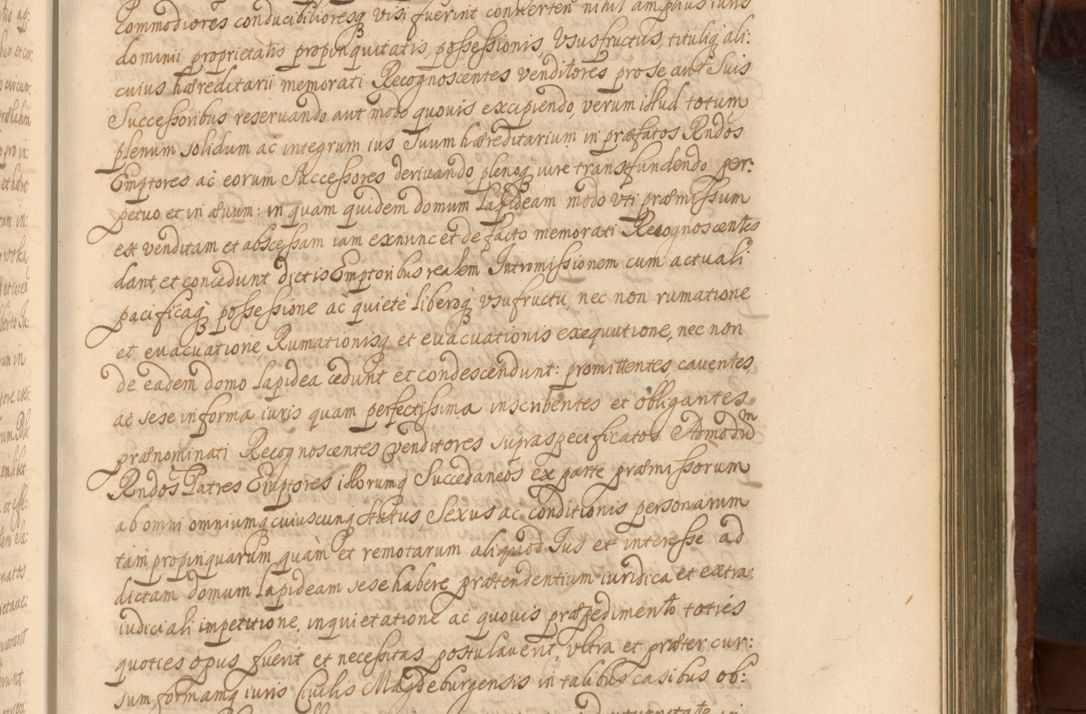 Commodiores conducibilioresq visi fuerint converten nihil amplius iuris
dominii proprietatis propinquitatis possessionis, Vsusfructus, tituliq ali:
cuius hæreditarii memorati Recognoscentes venditores pro se aut Suis
Successoribus reservando aut modo quovis excipiendo, verum illud totum
plenum solidum ac integrum ius Suum hæreditarium in præfatos Rndos
Emptores ac eorum Successores derivando plenoq iure transfundendo per:
petuo et in ævum: in quam quidem domum Lapideam modo vti præmissum
est venditam et abscessam iam exnunc et de facto memorati Recognoscentes
dant et concedunt dictis Emptoribus realem Intromissionem cum actuali
pacificaq possessione ac quiete liberoq vsufructu nec non rumatione
et evacuatione, Rumationisq et evacuationis exequutione, nec non
de eadem domo Lapidea cedunt et condescendunt: promittentes caventes
ac sese in forma iuris quam perfectissima inscribentes et obligantes
prænominati Recognoscentes Venditores supraspecificatos Admodm
Rndos Patres Emptores illorumq Succedaneos ex parte præmissorum
ab omni omniumq cuiuscunq Status Sexus ac conditionis personarum
tam propinquarum quam et remotarum aliquod Ius et interesse ad
dictam domum Lapideam sese habere prætendentium iuridica et extra:
iudiciali impetitione, inquietatione ac quovis præpedimento toties
quoties opus fuerit et necessitas postulaverit vltra et præter cur:
sum formamq iuris Civilis Magdeburgensis in talibus casibus ob: